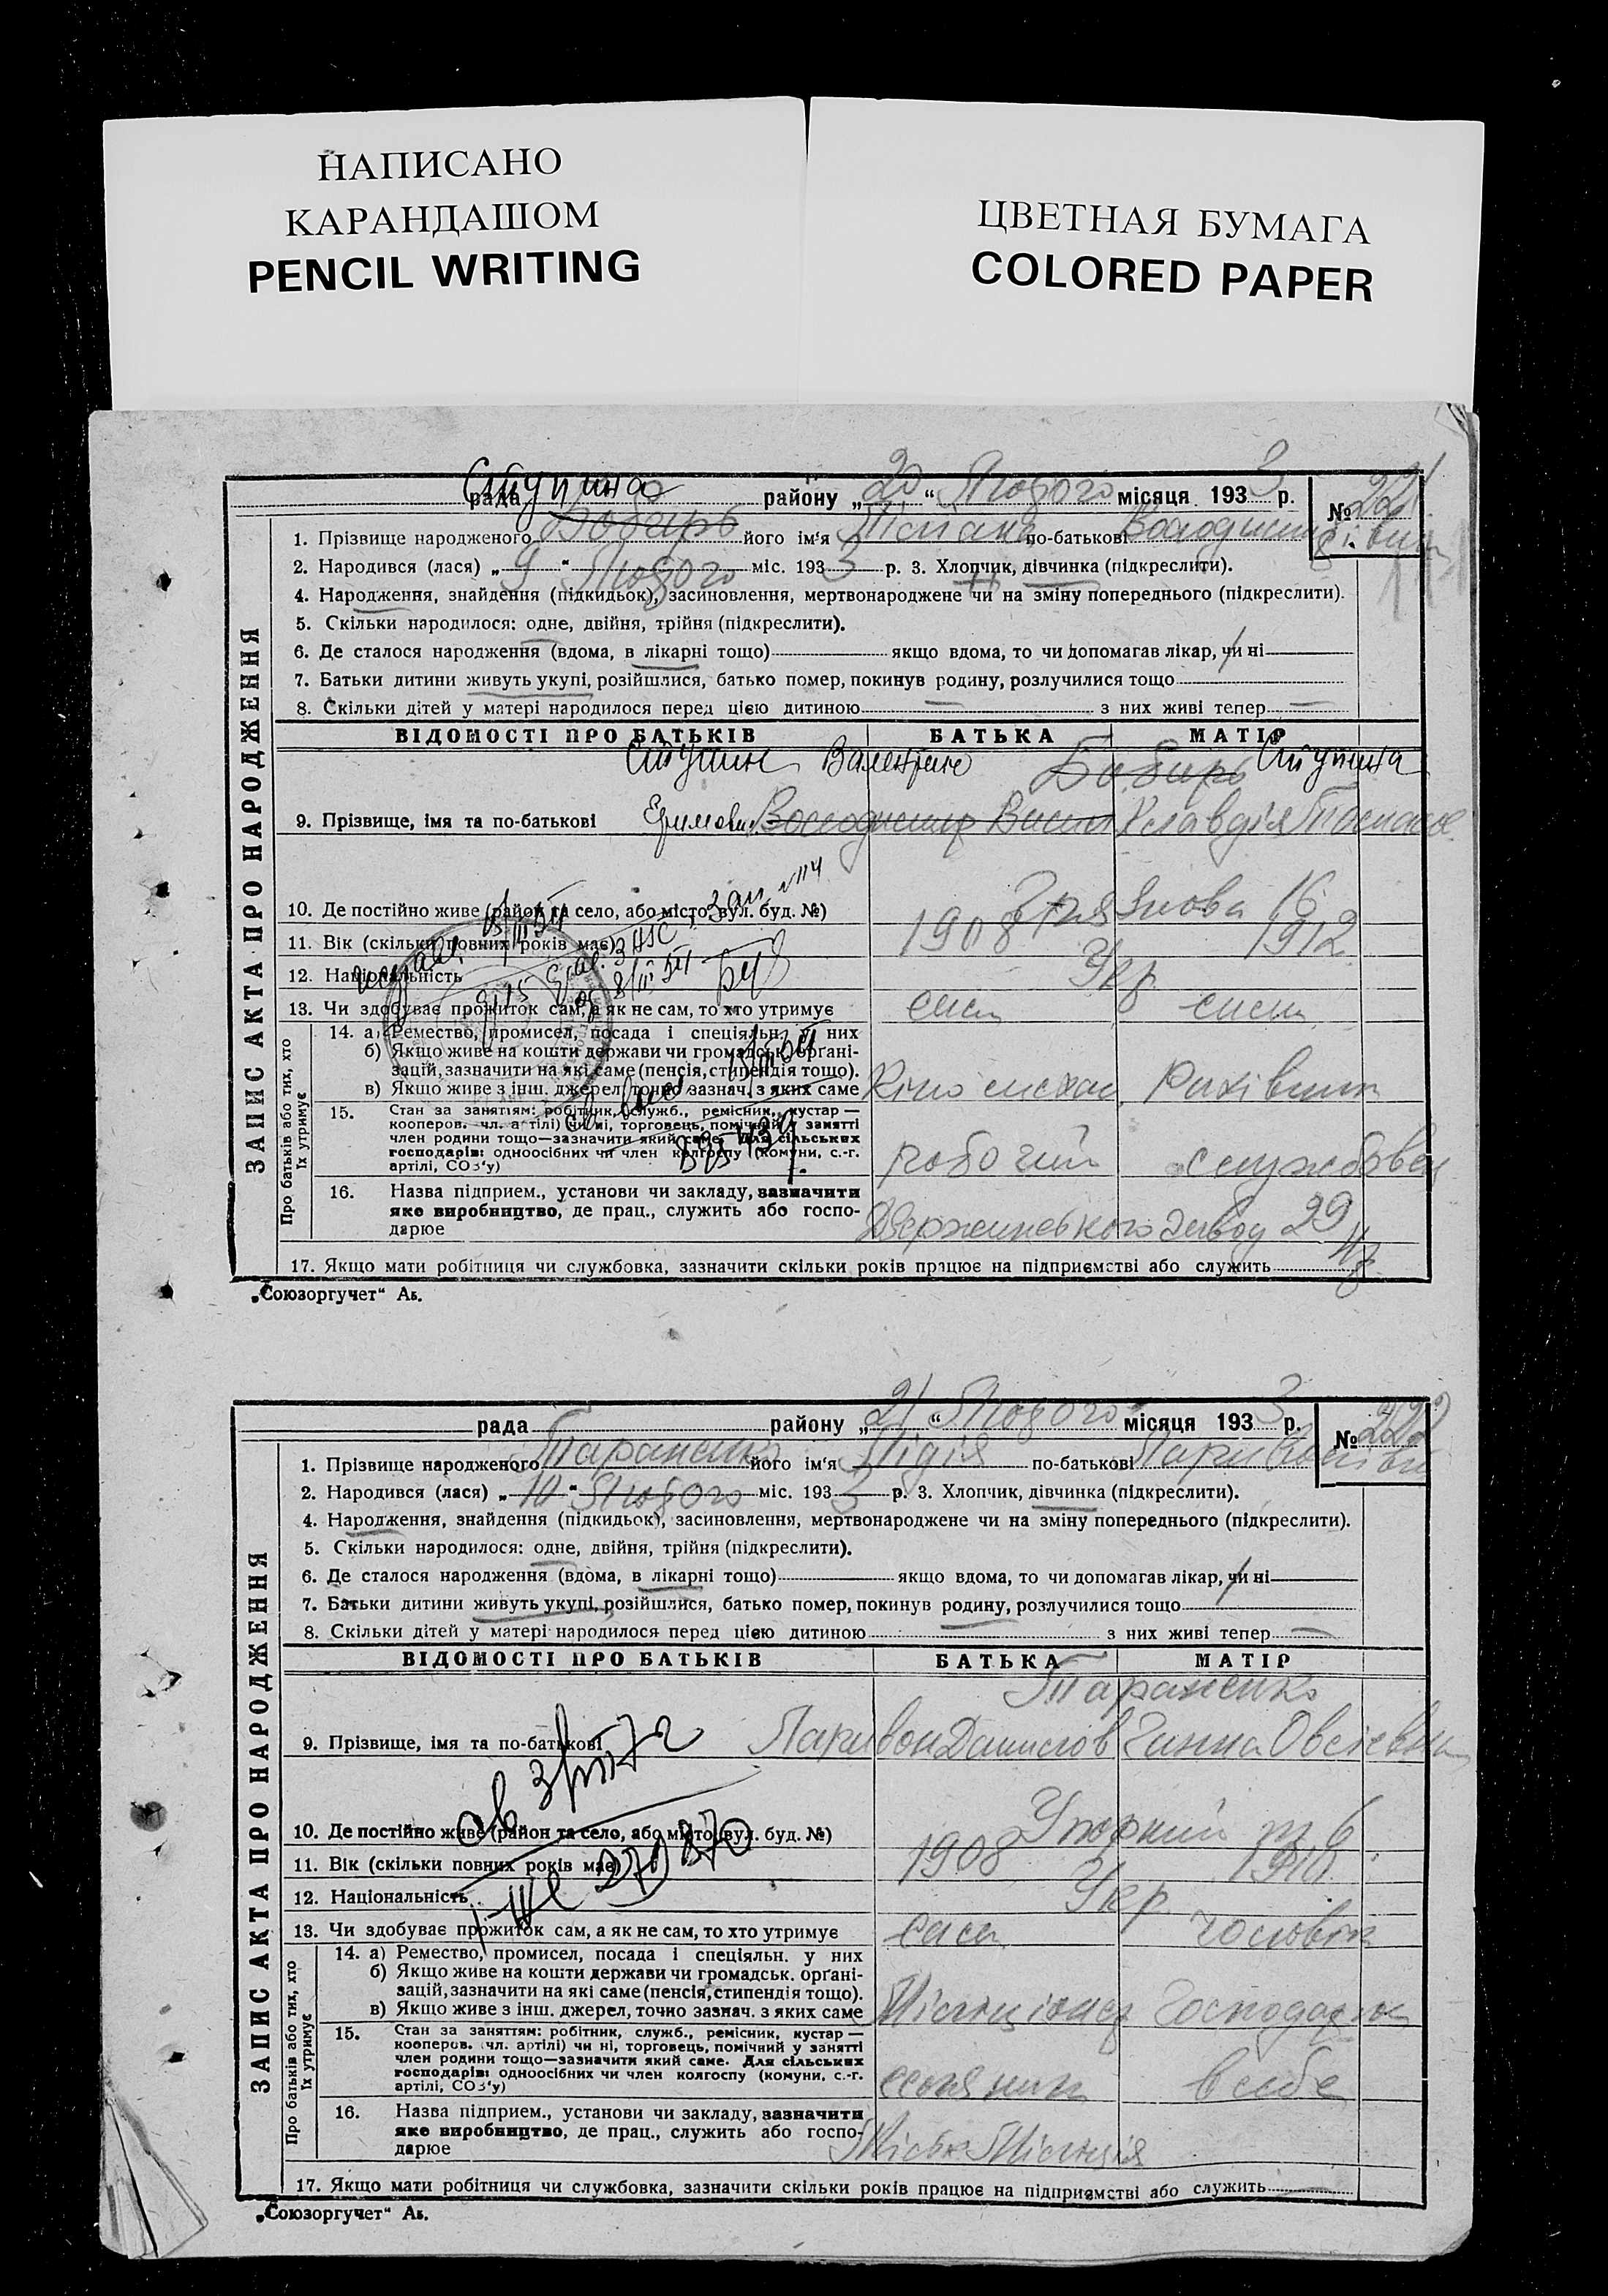 НАПИСАНО
КАРАНДАШОМ
PENCIL WRITING
ЦВЕТНАЯ БУМАГА
COLORED PAPER
Ступина
рада району „20“ Лютого місяця 1933 р.
№ 221
1. Прізвище народженого Бобирь його ім'я по-батькові
2. Народився (лася) „9“ Лютого міс. 1933 р. 3. Хлопчик, дівчинка (підкреслити).
4. Народження, знайдення (підкидьок), засиновлення, мертвонароджене чи на зміну попереднього (підкреслити).
5. Скільки народилося: одне, двійня, трійня (підкреслити).
6. Де сталося народження (вдома, в лікарні тощо) якщо вдома, то чи допомагав лікар, чи ні
7. Батьки дитини живуть укупі, розійшлися, батько помер, покинув родину, розлучилися тощо
8. Скільки дітей у матері народилося перед цією дитиною — з них живі тепер —
ЗАПИС АКТА ПРО НАРОДЖЕННЯ
ВІДОМОСТІ ПРО БАТЬКІВ БАТЬКА МАТІР
Ступин Валентин Бобирь Ступина
9. Прізвище, імя та по-батькові Володимир Клавдія
10. Де постійно живе (район та село, або місто, вул. буд. №) 16
11. Вік (скільки повних років має) 1908 1912
12. Національність Укр
13. Чи здобуває прожиток сам, а як не сам, то хто утримує сам сама
Про батьків або тих, хто їх утримує
14. а) Ремество, промисел, посада і спеціяльн. у них
б) Якщо живе на кошти держави чи громадськ. органі-
зацій, зазначити на які саме (пенсія, стипендія тощо).
в) Якщо живе з інш. джерел, точно зазнач. з яких саме Кіно механ. Рахівник
15. Стан за заняттям: робітник, служб., ремісник, кустар —
кооперов. чл. артілі) чи ні, торговець, помічний у занятті
член родини тощо—зазначити який саме. Для сільських
господарів: одноосібних чи член колгоспу (комуни, с.-г.
артілі, СОЗ'у) робочий службовец
16. Назва підприєм., установи чи закладу, зазначити
яке виробництво, де прац., служить або госпо-
дарює Дзержинського завод 29
17. Якщо мати робітниця чи службовка, зазначити скільки років працює на підприємстві або служить
„Союзоргучет“ Аь.
рада району „21“ Лютого місяця 1933 р.
№ 222
1. Прізвище народженого Тараненко його ім'я Лідія по-батькові
2. Народився (лася) „10“ Лютого міс. 1933 р. 3. Хлопчик, дівчинка (підкреслити).
4. Народження, знайдення (підкидьок), засиновлення, мертвонароджене чи на зміну попереднього (підкреслити).
5. Скільки народилося: одне, двійня, трійня (підкреслити).
6. Де сталося народження (вдома, в лікарні тощо) якщо вдома, то чи допомагав лікар, чи ні
7. Батьки дитини живуть укупі, розійшлися, батько помер, покинув родину, розлучилися тощо
8. Скільки дітей у матері народилося перед цією дитиною — з них живі тепер —
ЗАПИС АКТА ПРО НАРОДЖЕННЯ
ВІДОМОСТІ ПРО БАТЬКІВ БАТЬКА МАТІР
Тараненко
9. Прізвище, імя та по-батькові Ларивон Данилов Ганна Овсіевна
10. Де постійно живе (район та село, або місто, вул. буд. №) 6
11. Вік (скільки повних років має) 1908 1910
12. Національність Укр
13. Чи здобуває прожиток сам, а як не сам, то хто утримує сам чоловік
Про батьків або тих, хто їх утримує
14. а) Ремество, промисел, посада і спеціяльн. у них
б) Якщо живе на кошти держави чи громадськ. органі-
зацій, зазначити на які саме (пенсія, стипендія тощо).
в) Якщо живе з інш. джерел, точно зазнач. з яких саме Міліціонер
15. Стан за заняттям: робітник, служб., ремісник, кустар —
кооперов. чл. артілі) чи ні, торговець, помічний у занятті
член родини тощо—зазначити який саме. Для сільських
господарів: одноосібних чи член колгоспу (комуни, с.-г.
артілі, СОЗ'у) в себе
16. Назва підприєм., установи чи закладу, зазначити
яке виробництво, де прац., служить або госпо-
дарює Міліція
17. Якщо мати робітниця чи службовка, зазначити скільки років працює на підприємстві або служить
„Союзоргучет“ Аь.